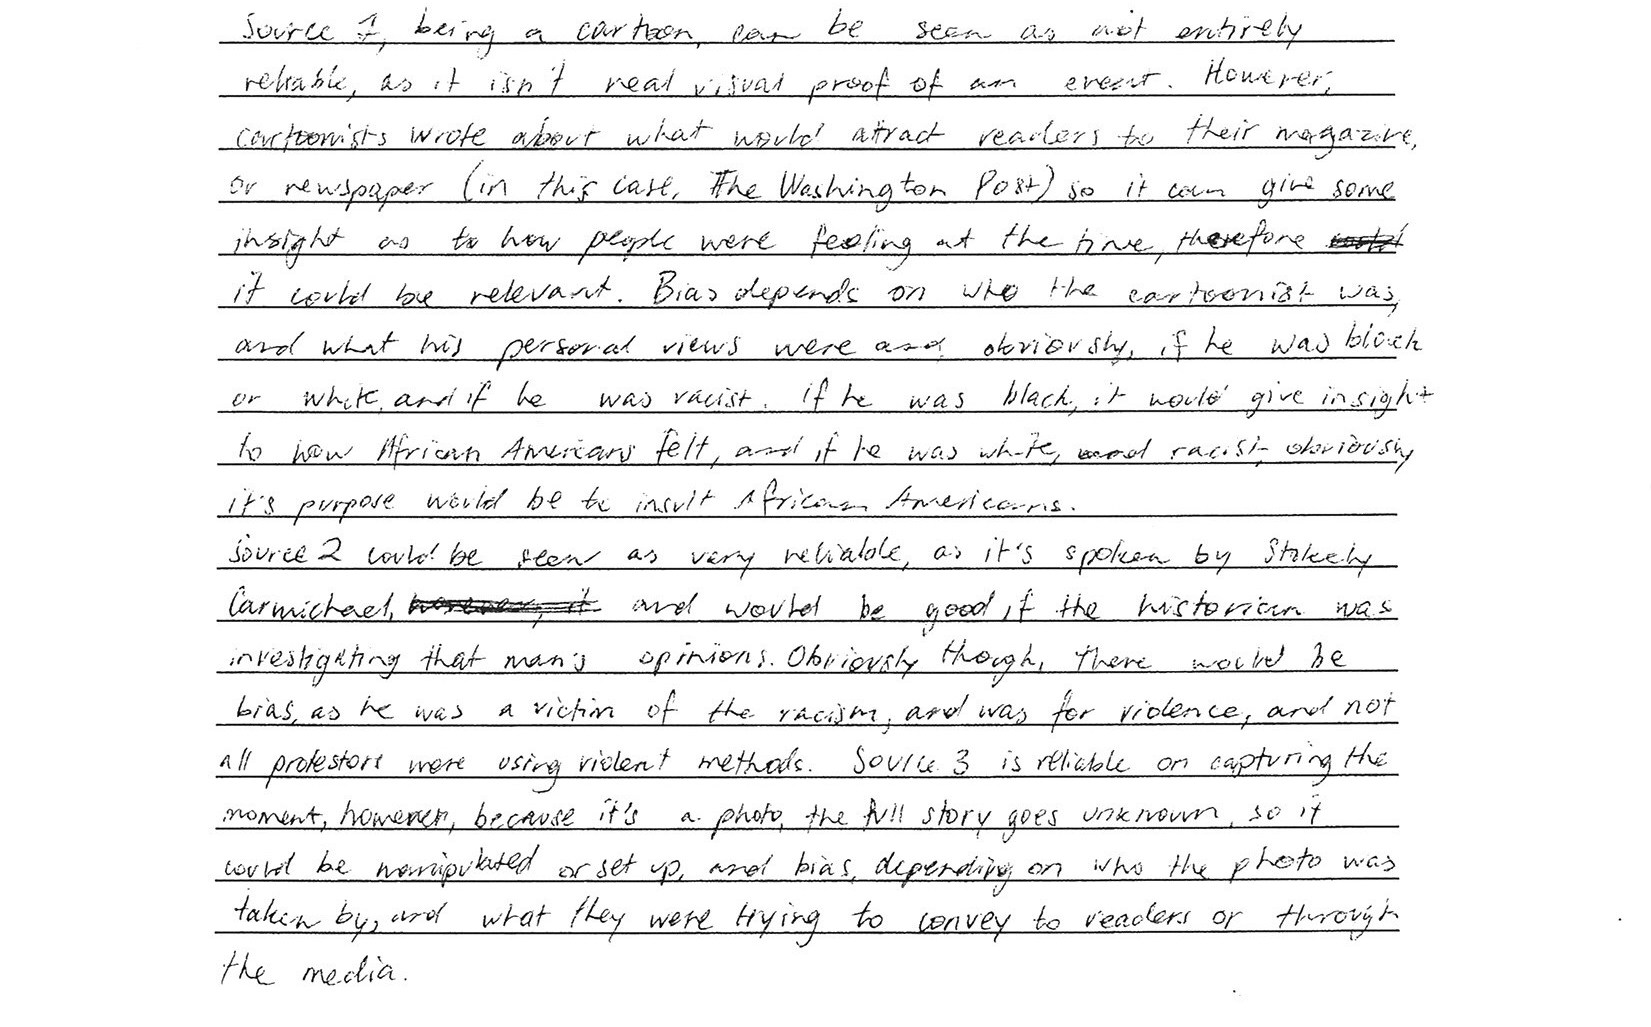 Source 1, being a cartoon, can be seen as not entirely
reliable, as it isn't real visual proof of an event. However,
cartoonists wrote about what would attract readers to their magazine,
or newspaper (in this case, The Washington Post) so it can give some
insight as to how people were feeling at the time, therefore
it could be relevant. Bias depends on who the cartoonist was,
and what his personal views were and, obviously, if he was black
or white, and if he was racist. If he was black, it would give insight
to how African Americans felt, and if he was white, and racist, obviously
it's purpose would be to insult African Americans.
Source 2 could be seen as very reliable, as it's spoken by Stokely
Carmichael, however, it and would be good if the historian was
investigating that man's opinions. Obviously though, there would be
bias, as he was a victim of the racism, and was for violence, and not
all protestors were using violent methods. Source 3 is reliable on capturing the
moment, however, because it's a photo, the full story goes unknown, so it
could be manipulated or set up, and bias, depending on who the photo was
taken by, and what they were trying to convey to readers or through
the media.